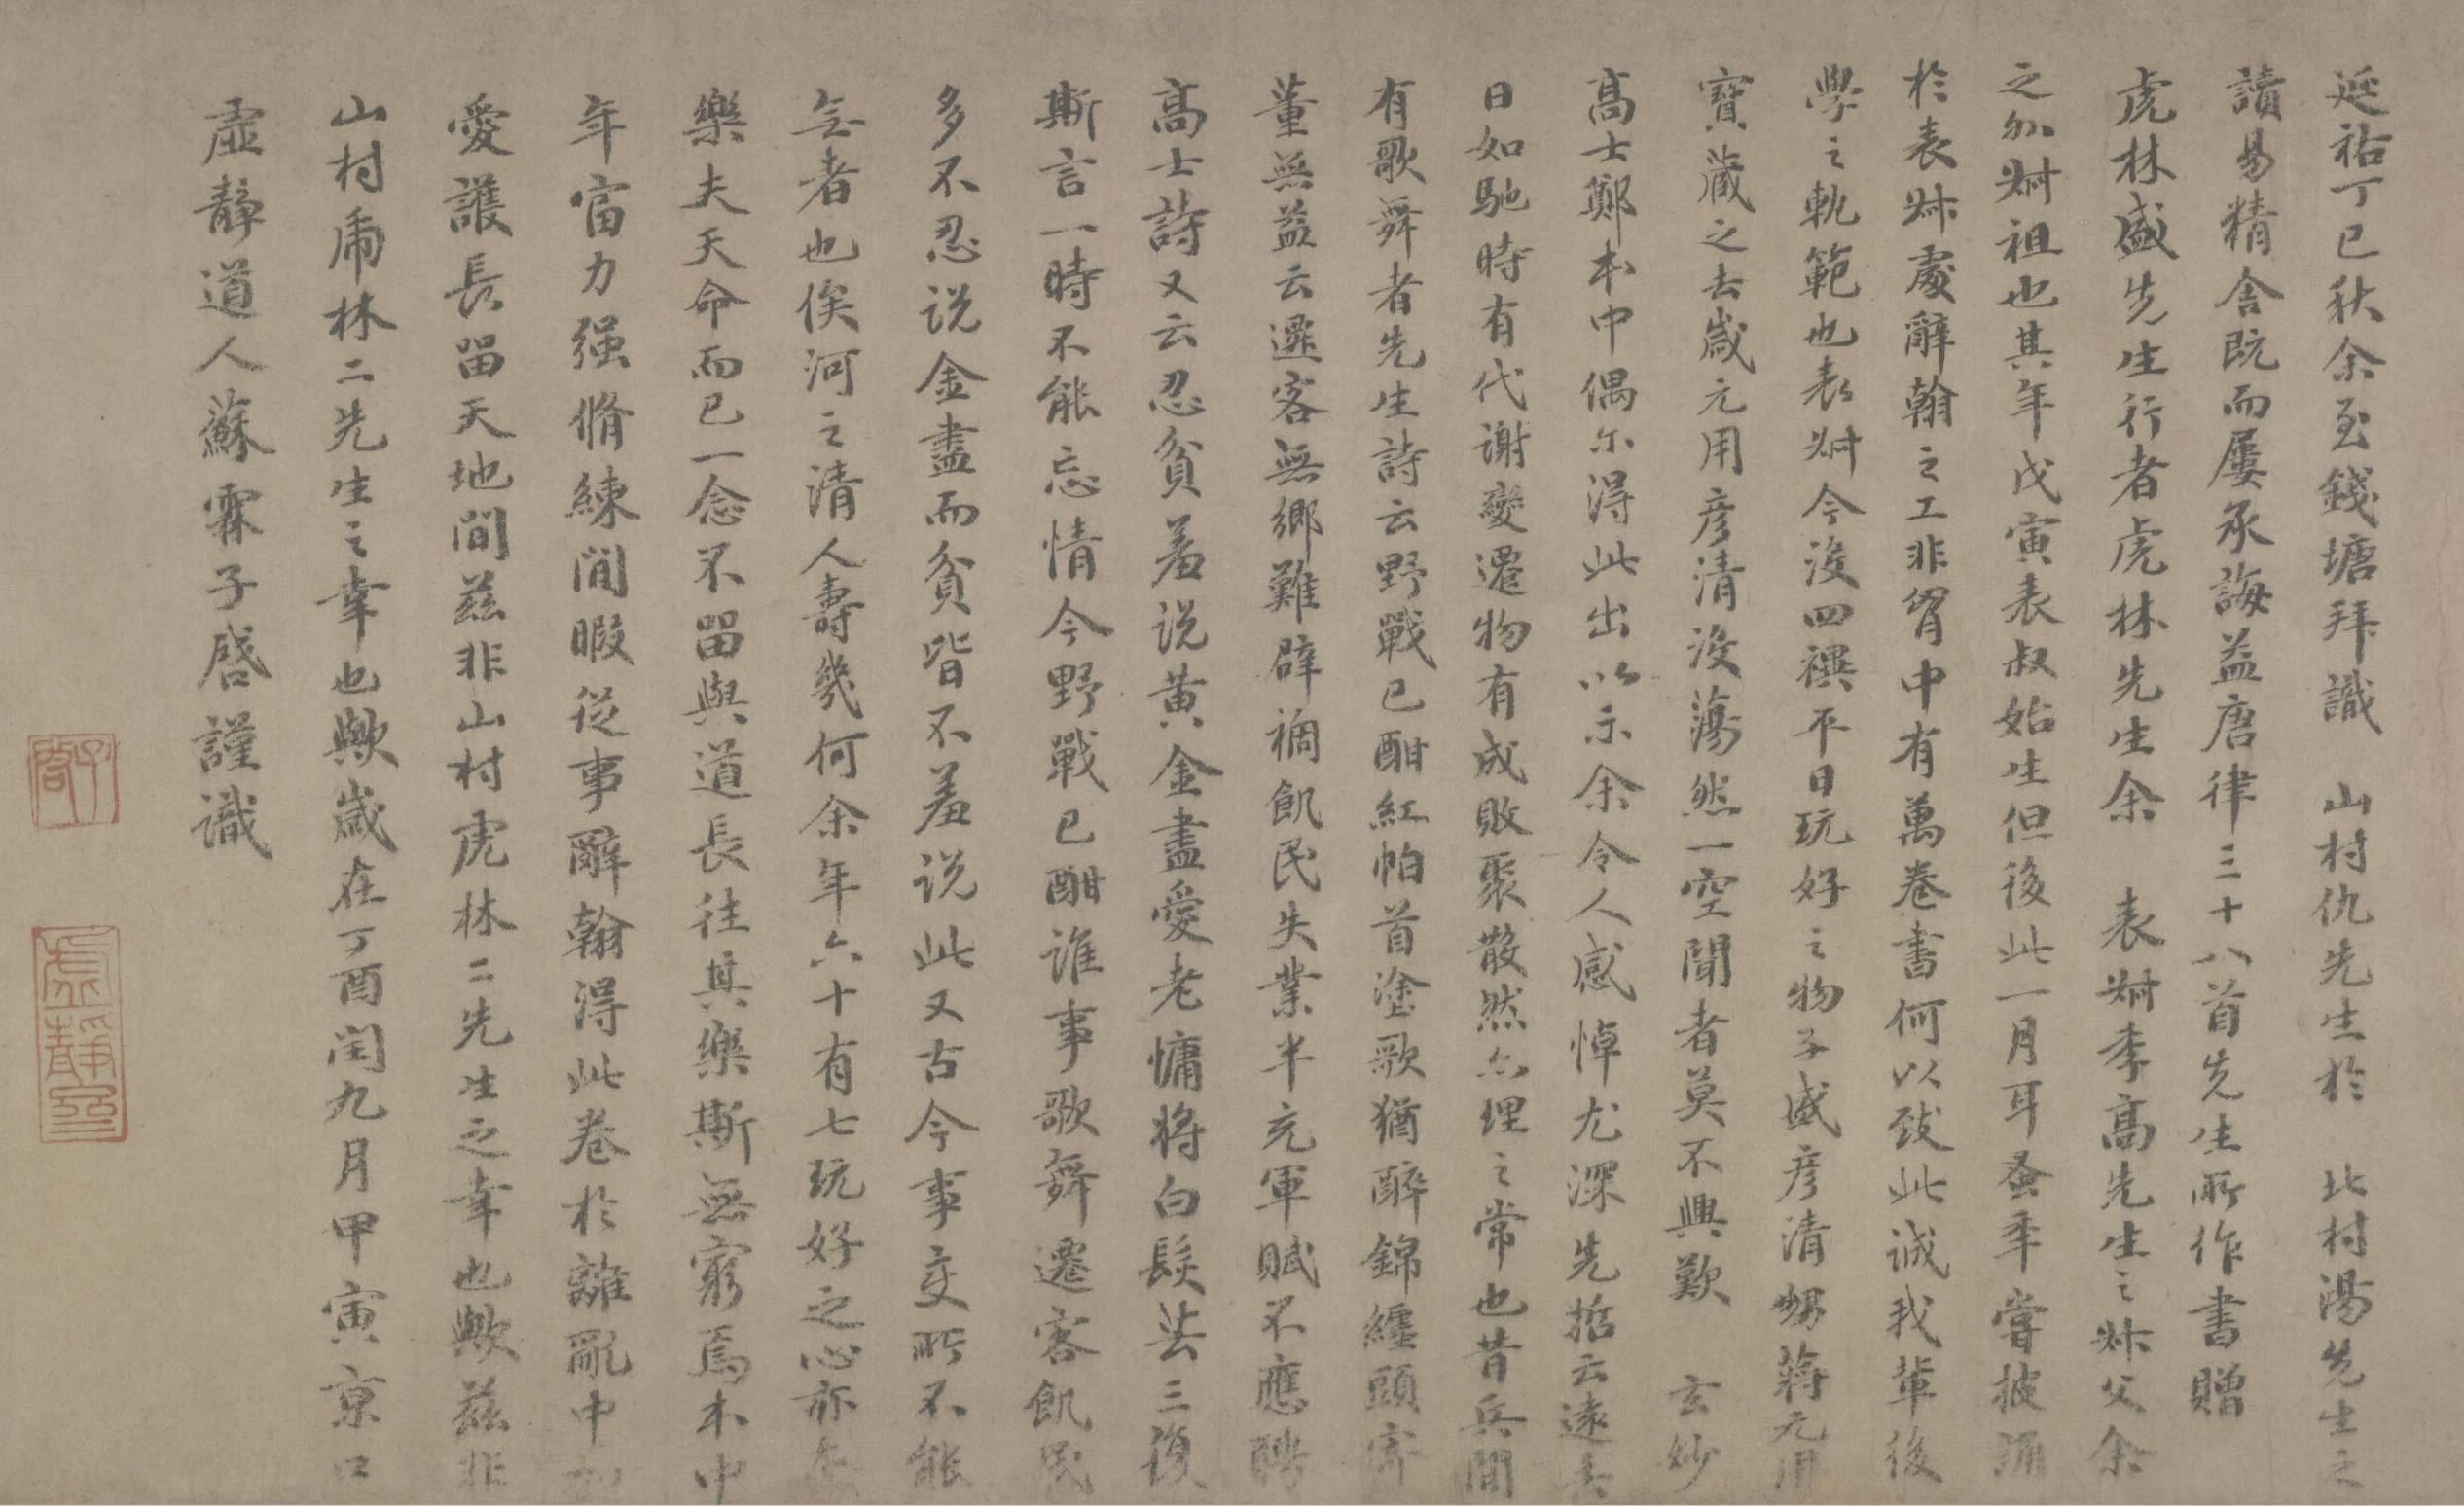 延祐丁巳秋余至錢塘拜識 山村仇先生於 北村湯先生之
讀易精舍既而屢承誨益唐律三十八首先生所作書贈
虎林盛先生行者虎林先生余 表叔季高先生之叔父余
之外叔祖也其年戊寅表叔始生但後此一月耳蚤年嘗披誦
於表叔處辭翰之工非胷中有萬卷書何以致此誠我輩後
學之軌範也表叔今没四禩平日玩好之物子盛彦清甥蒋元用
寶藏之去歲元用彦清没蕩然一空聞者莫不興歎 玄妙
髙士鄭本中偶尔得此出以示余令人感悼尤深先哲云逺去
日如馳時有代謝變遷物有成敗聚散然亦理之常也昔兵間
有歌舞者先生詩云野戰已酣紅帕首塗歌猶醉錦纏頭寄
董無益云遷客無鄉難辟禍飢民失業半充軍賦不應聘
髙士詩又云忍貧羞说黄金盡愛老慵将白髮芸三復
斯言一時不能忘情今野戰已酣誰事歌舞遷客飢民
多不忍说金盡而貧皆不羞说此又古今事变所不能
免者也俟河之清人壽幾何余年六十有七玩好之心亦
樂夫天命而已一念不留與道長往其樂斯無窮焉本中
年富力强脩練閒暇從事辭翰得此卷於離亂中
愛護長留天地間兹非山村虎林二先生之幸也歟兹非
山村虎林二先生之幸也歟歲在丁酉閏九月甲寅京口
虚靜道人蘇霖子啓謹識
子啓
虚靜